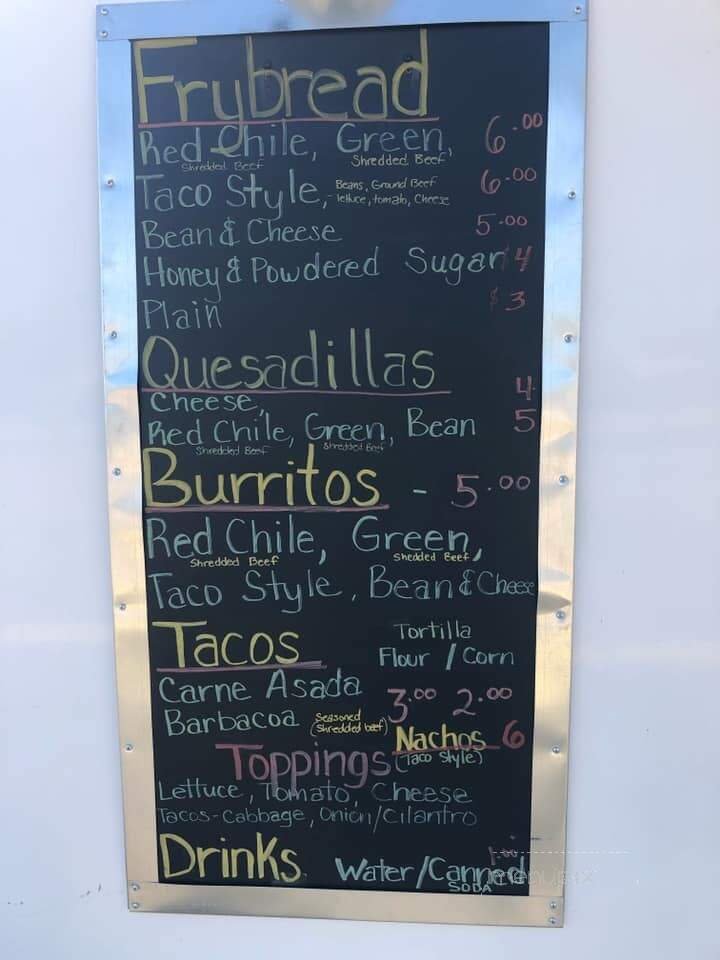 Frybread
Red Chile, Green, 6.00
Shredded Beef Shredded Beef
Taco Style,- Beans, Ground Beef 6.00
lettuce, tomato, Cheese
Bean & Cheese 5.00
Honey & Powdered Sugar $4
Plain $3
Quesadillas
Cheese, 4
Red Chile, Green, Bean 5
Shredded Beef Shredded Beef
Burritos - 5.00
Red Chile, Green,
Shredded Beef Shedded Beef
Taco Style, Bean & Cheese
Tacos Tortilla
Flour / Corn
Carne Asada 3.00 2.00
Barbacoa Seasoned
(Shredded beef)
Nachos 6
(Taco Style)
Toppings
Lettuce, Tomato, Cheese
Tacos-Cabbage, Onion/Cilantro
Drinks 1.00
Water/Canned
SODA